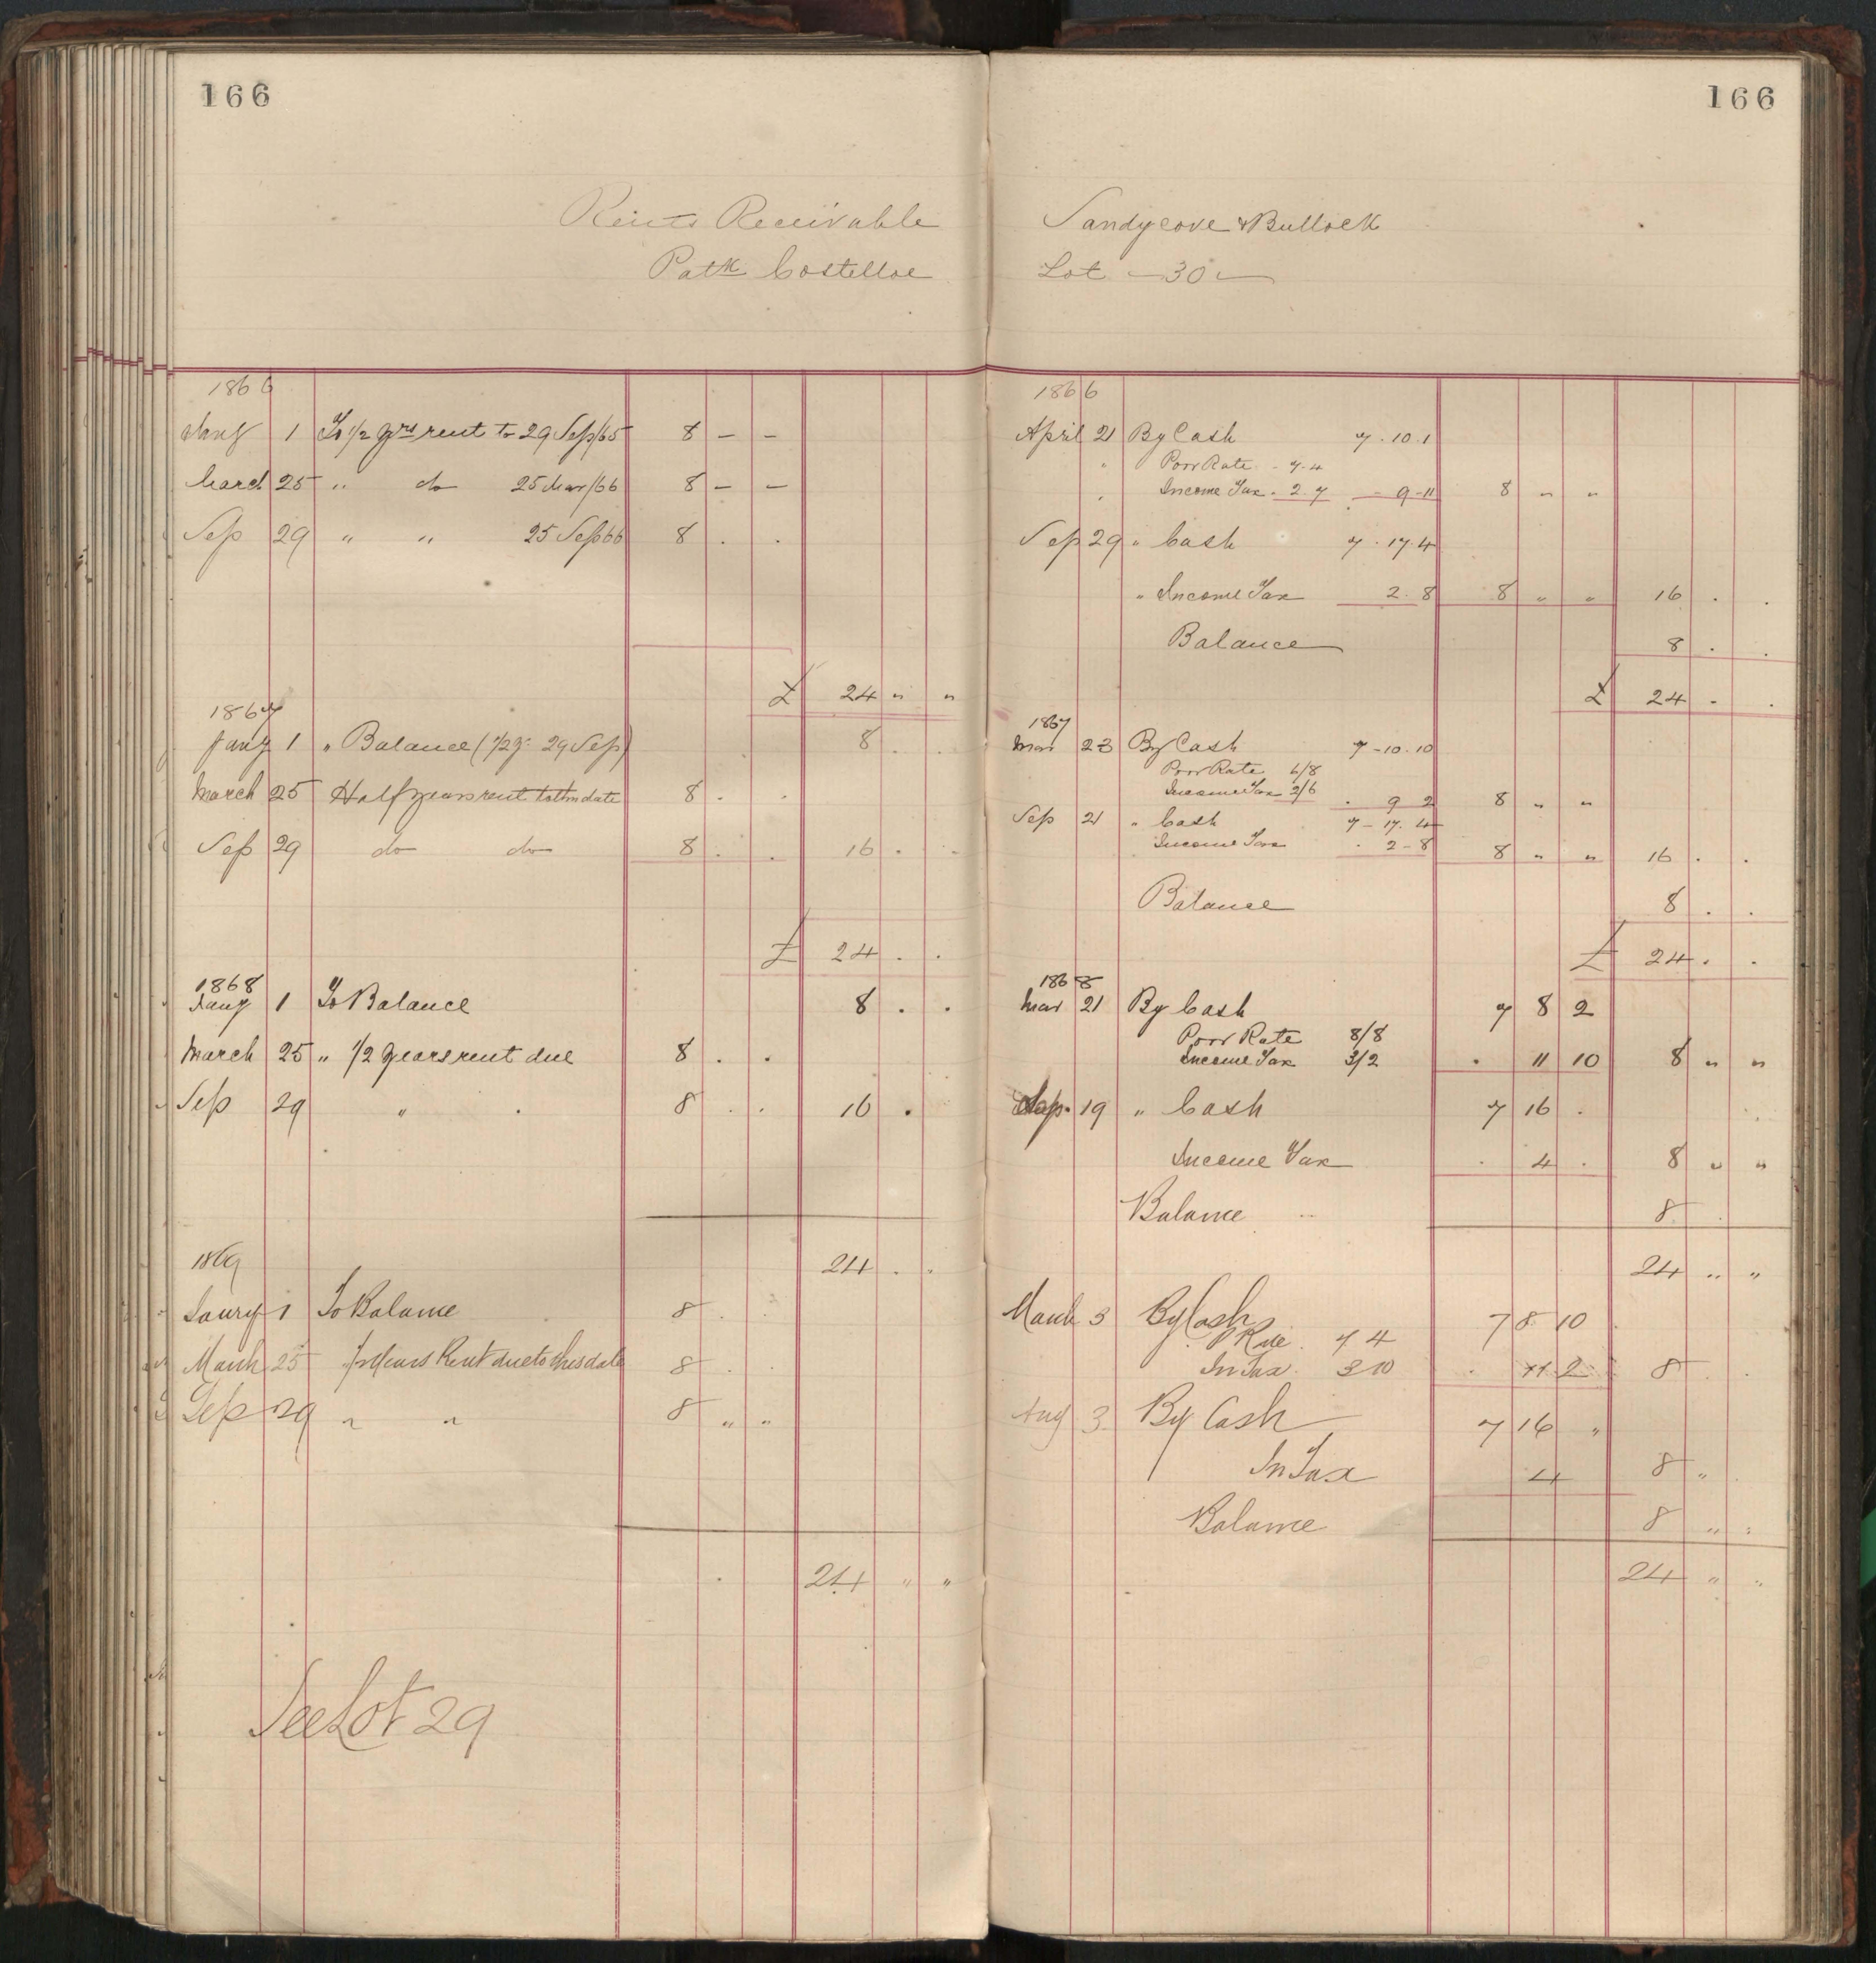 166
Rents Receivable
Patk Costelloe
1866
Jany 1 To 1/2 yrs rent to 29 Sep/65 8 – –
March 25 " do 25 Mar/66 8 – –
Sep 29 " " 25 Sep 66 8 . .
£ 24 " "
1867
Jany 1 " Balance (1/2 y: 29 Sep) 8 . .
March 25 Half years rent to thn date 8 . .
Sep 29 do do 8 . . 16 . -
£ 24 . .
1868
Jany 1 To Balance 8 . .
March 25 " 1/2 years rent due 8 . .
Sep 29 " . 8 . . 16 .
24 . .
1869
Janry 1 To Balance 8 . .
March 25 " 1/2 Years Rent due to this date 8 . .
Sep 29 " " 8 " "
24 " "
See Lot 29
166
Sandycove & Bullock
Lot – 30 –
1866
April 21 By Cash 7 . 10 . 1
" Poor Rate - 7-4
" Income Tax . 2 . 7 - 9 - 11 8 " "
Sep 29 " Cash 7 . 17 . 4
" Income Tax 2 . 8 8 " " 16 . .
Balance 8 . .
£ 24 . .
1867
Mar 23 By Cash 7 - 10 . 10
Poor Rate 6/8
Income Tax 2/6 . 9 2 8 " "
Sep 21 " Cash 7 - 17 . 4
Income Tax . 2 - 8 8 " " 16 . .
Balance 8 . .
£ 24 . .
1868
Mar 21 By Cash 7 8 2
Poor Rate 8/8
Income Tax 3/2 . 11 10 8 " "
Sep. 19 " Cash 7 16 .
Income Tax . 4 . 8 " "
Balance 8 .
24 " "
March 3 By Cash 7 8 10
P Rate . 7 4
In Tax . 3 10 . 11 2 8 . .
Aug 3 By Cash 7 16 "
In Tax 4 8 "
Balance 8 " "
24 " "